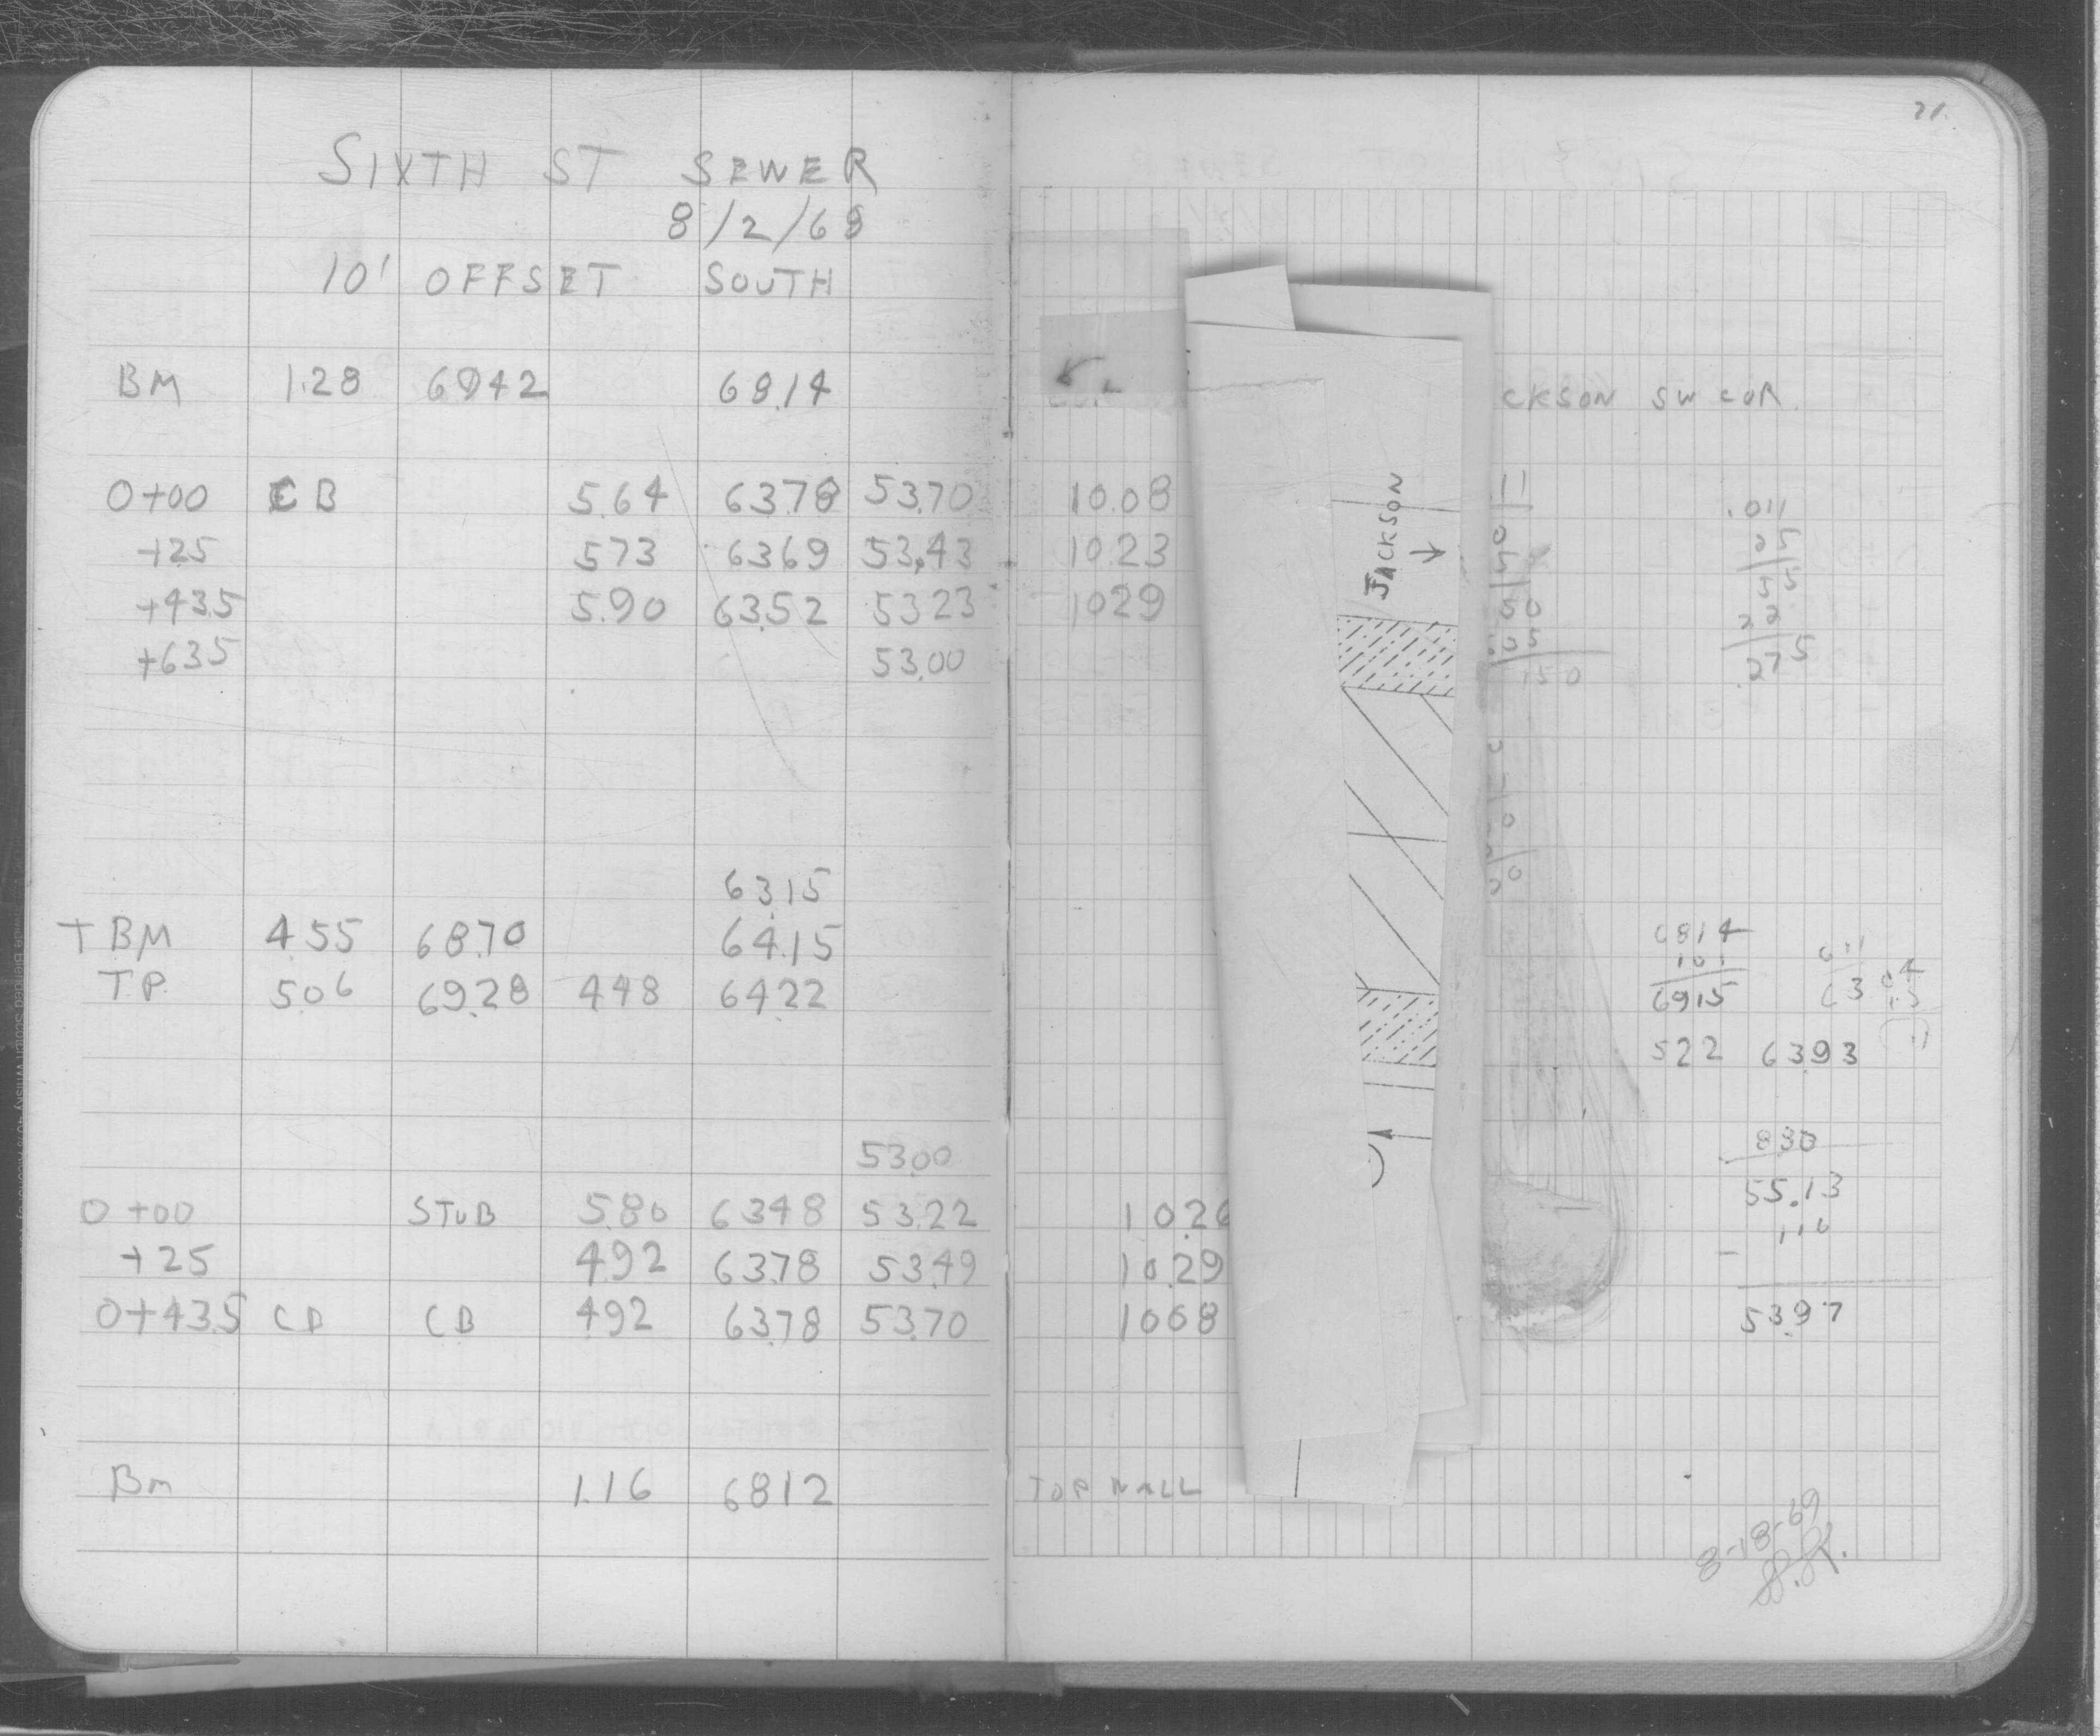 SIXTH ST SEWER
8/2/69
10' OFFSET SOUTH
BM 1.28 6942 68.14
0+00 CB 5.64 63.78 53.70
+25 573 6369 53.43
+43.5 5.90 63.52 53 23
+635 53.00
63.15
TBM 4 55 68.70 64.15
T.P. 506 69.28 448 64.22
53.00
0+00 STUB 5.80 6348 53.22
+25 492 63.78 53.49
0+43.5 CB CB 492 63.78 53.70
Bm 1.16 6812
21
CKSON SW COR.
10.08
10.23
1029
JACKSON
.011
25
55
22
.275
50
150
6814
101
6915
522 6393
830
55.13
53.97
10.26
10.29
1008
TOP WALL
8-18-69